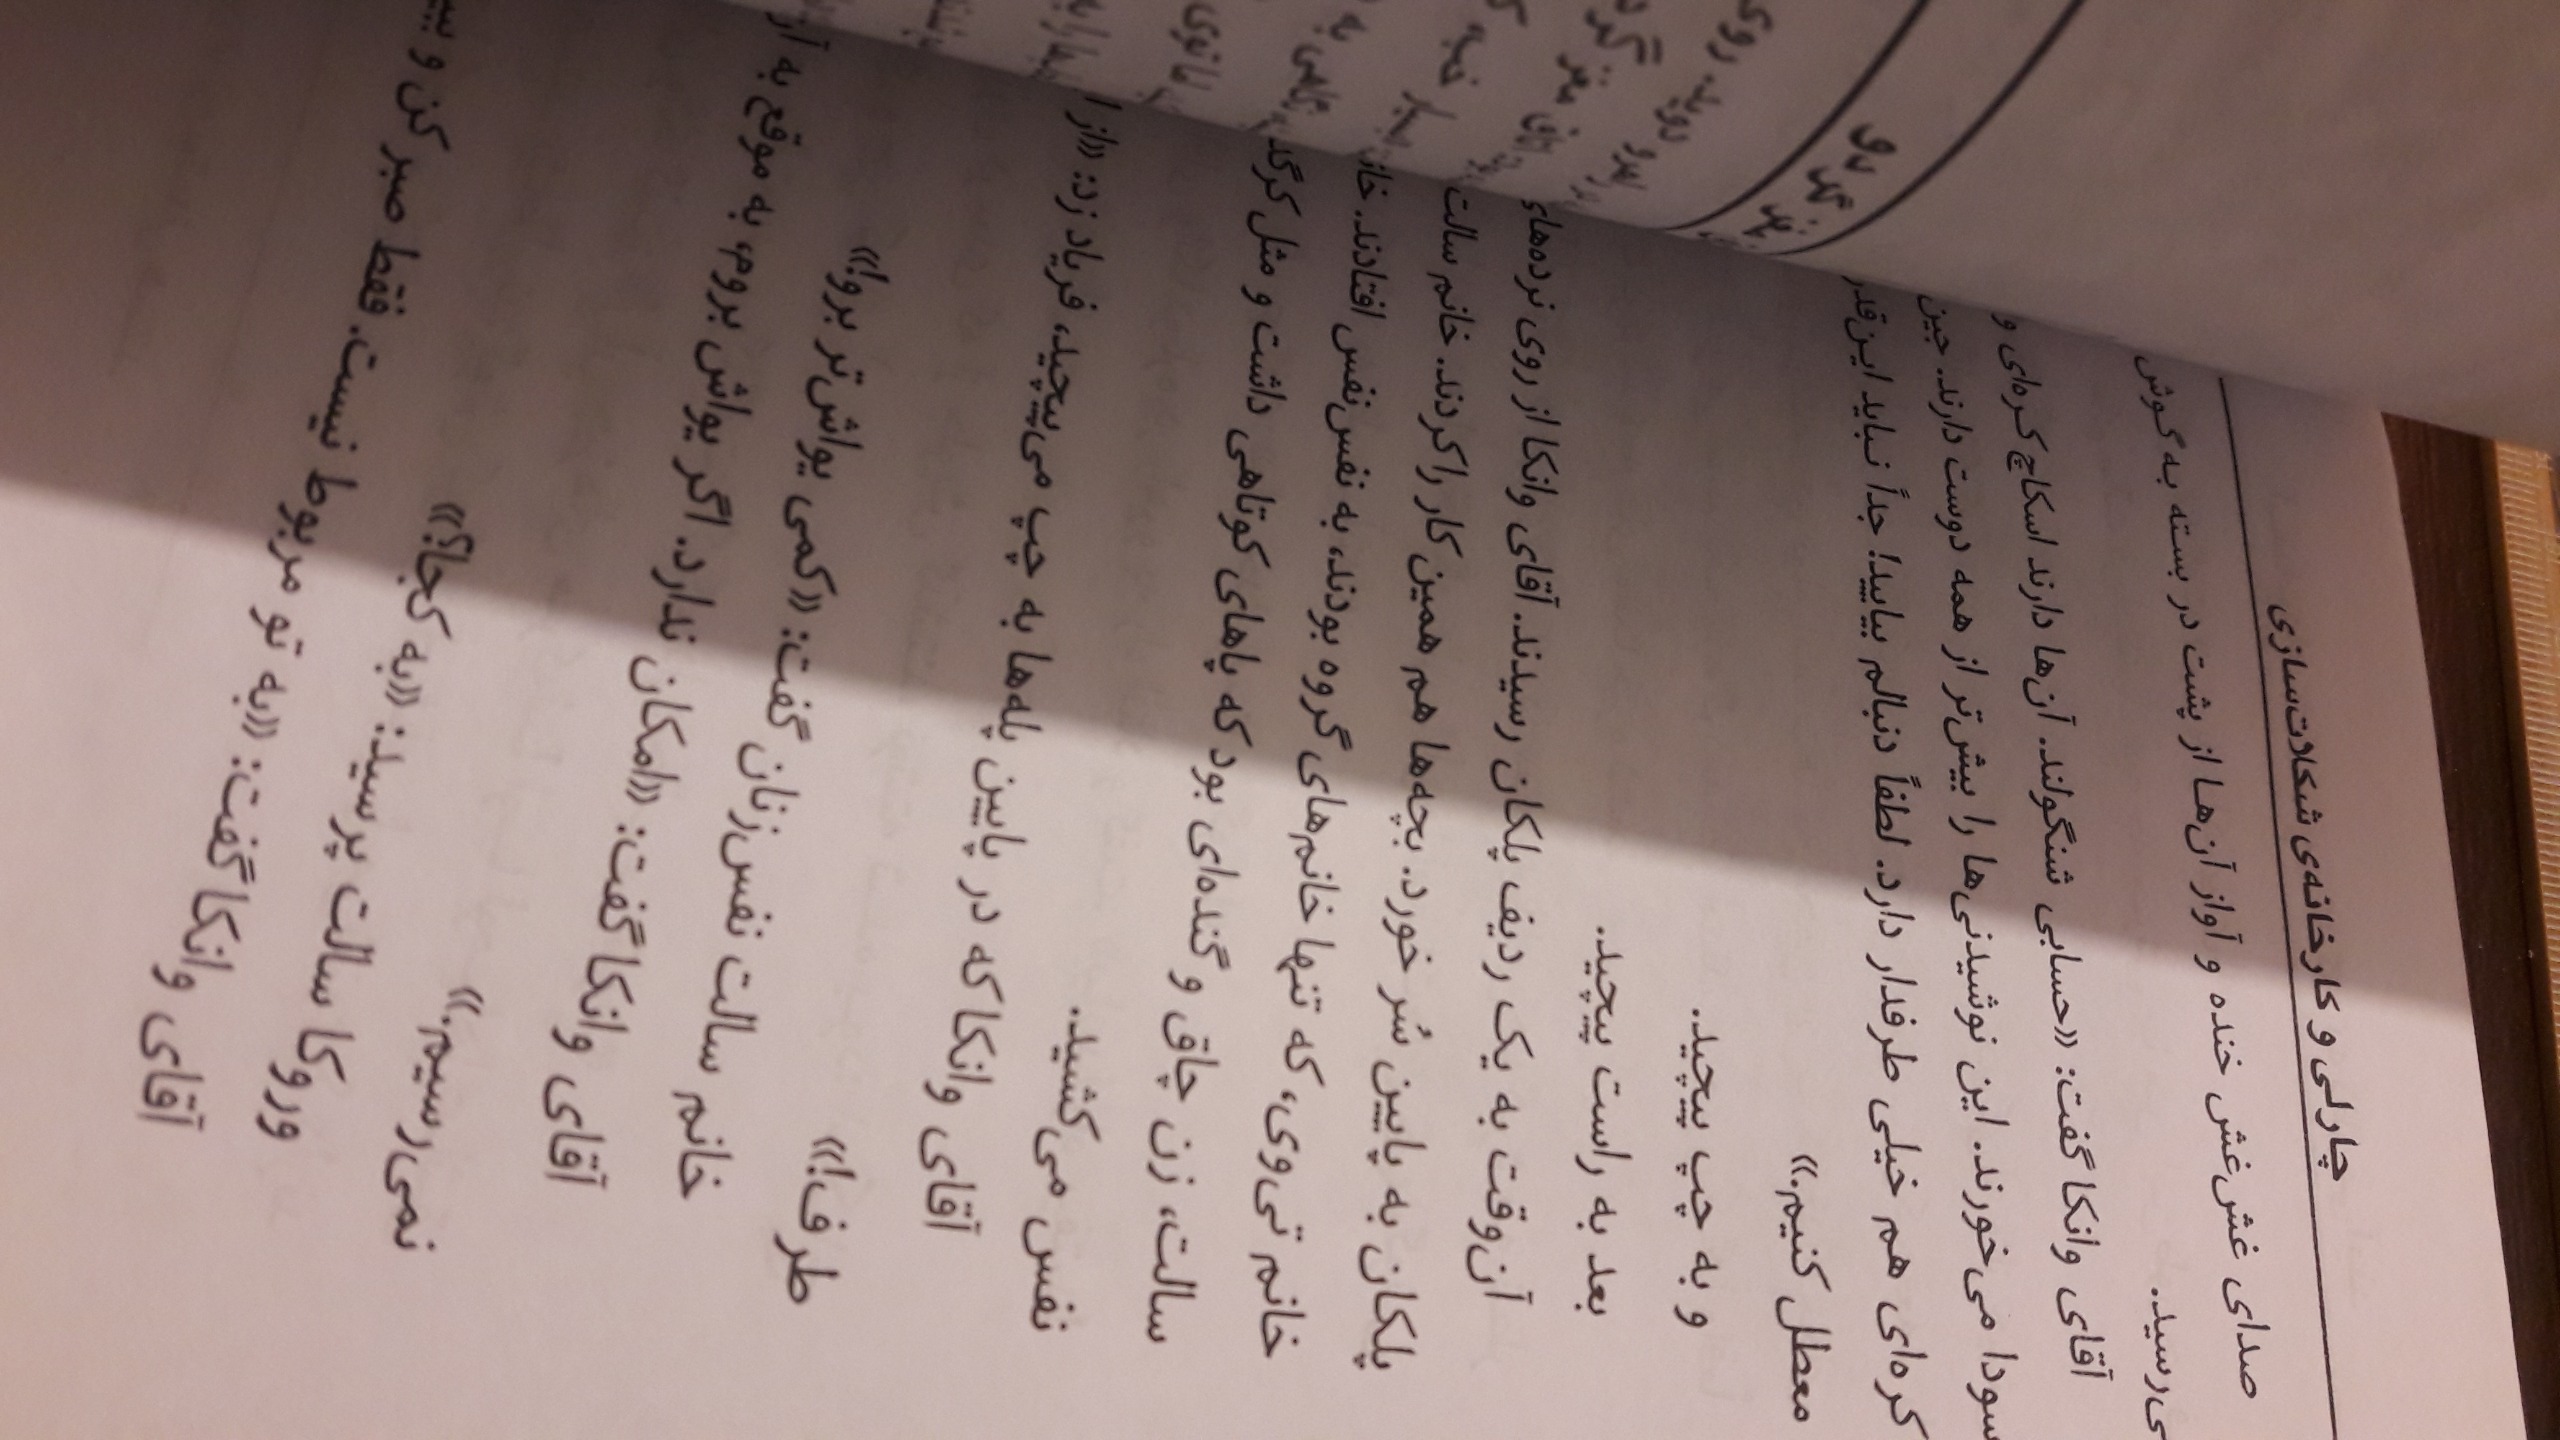 چارلی و کارخانه‌ی شکلات‌سازی
صدای غش‌غش خنده و آواز آن‌ها از پشت در بسته به گوش
می‌رسید.
آقای وانکا گفت: «حسابی شنگولند. آن‌ها دارند اسکاچ کره‌ای و
سودا می‌خورند. این نوشیدنی‌ها را بیش‌تر از همه دوست دارند. جین
کره‌ای هم خیلی طرفدار دارد. لطفاً دنبالم بیایید! جداً نباید این‌قدر
معطل کنیم.»
و به چپ پیچید.
بعد به راست پیچید.
آن‌وقت به یک ردیف پلکان رسیدند. آقای وانکا از روی نرده‌های
پلکان به پایین سُر خورد. بچه‌ها هم همین کار را کردند. خانم سالت
خانم تی‌وی، که تنها خانم‌های گروه بودند، به نفس‌نفس افتادند.
سالت، زن چاق و گنده‌ای بود که پاهای کوتاهی داشت و مثل
نفس می‌کشید.
آقای وانکا که در پایین پله‌ها به چپ می‌پیچید، فریاد زد: «از
طرف!»
خانم سالت نفس‌زنان گفت: «کمی یواش‌تر برو!»
آقای وانکا گفت: «امکان ندارد. اگر یواش بروم، به موقع به
نمی‌رسیم.»
وروکا سالت پرسید: «به کجا؟»
آقای وانکا گفت: «به تو مربوط نیست. فقط صبر کن و